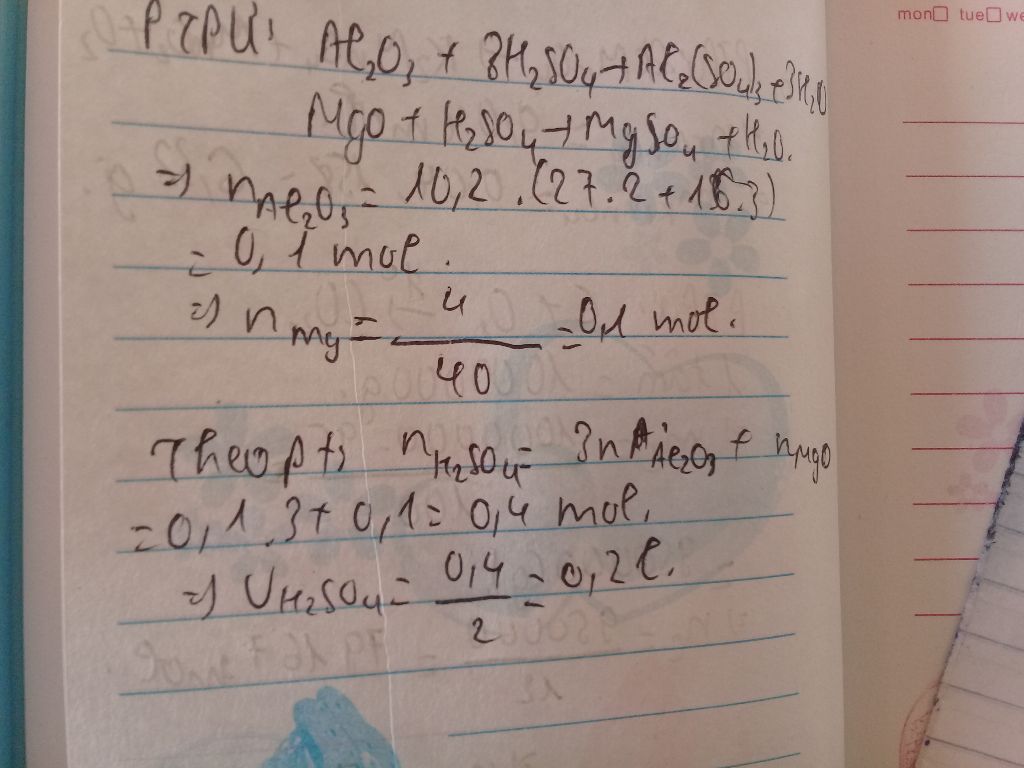 PTPƯ: Al₂O₃ + 3H₂SO₄ → Al₂(SO₄)₃ + 3H₂O
MgO + H₂SO₄ → MgSO₄ + H₂O.
⇒ nAl₂O₃ = 10,2 . (27.2 + 16.3)
= 0,1 mol.
⇒ nMg = 4/40 = 0,1 mol.
Theo pt, nH₂SO₄ = 3nAl₂O₃ + nMgO
= 0,1.3 + 0,1 = 0,4 mol.
⇒ VH₂SO₄ = 0,4/2 = 0,2l.
mon☐ tue☐ we